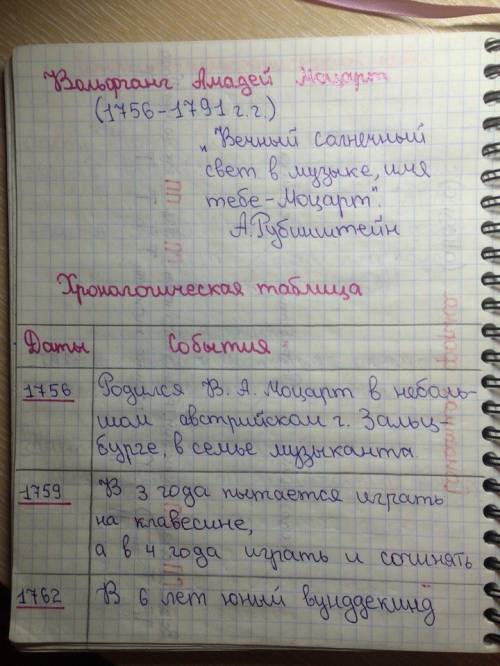 Вольфганг Амадей Моцарт
(1756-1791 г.г.)
„Вечный солнечный
свет в музыке, имя
тебе-Моцарт".
А.Рубинштейн
Хронологическая таблица
Даты События
1756 Родился В. А. Моцарт в неболь-
шом австрийском г. Зальц-
бурге, в семье музыканта.
1759 В 3 года пытается играть
на клавесине,
а в 4 года играть и сочинять
1762 В 6 лет юный вундеркинд